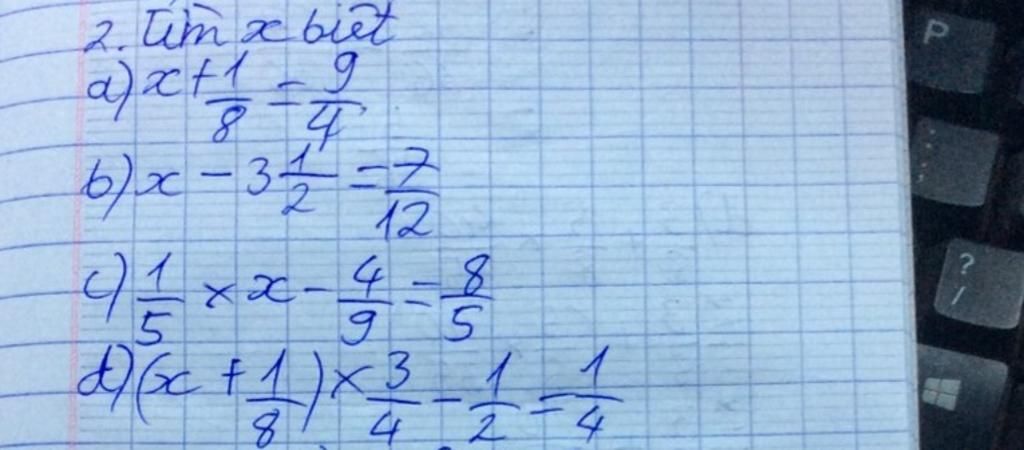 2. Tìm x biết
a) x + 1/8 = 9/4
b) x - 3 1/2 = 7/12
c) 1/5 × x - 4/9 = 8/5
d) (x + 1/8) × 3/4 - 1/2 = 1/4
P
:
;
?
/